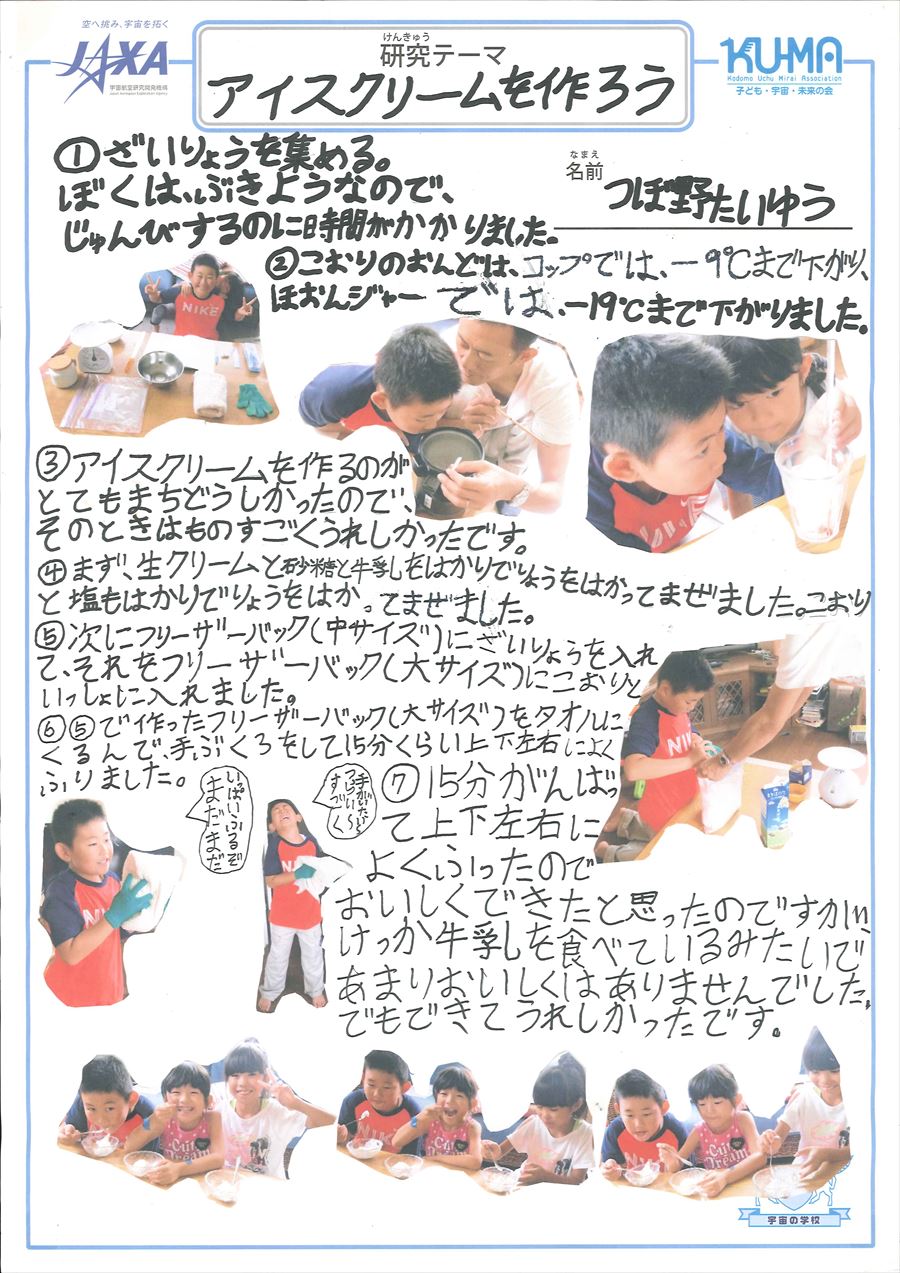 空へ挑み、宇宙を拓く
JAXA
宇宙航空研究開発機構
Japan Aerospace Exploration Agency
けんきゅう
研究テーマ
アイスクリームを作ろう
KU-MA
Kodomo Uchu Mirai Association
子ども・宇宙・未来の会
なまえ
名前
つぼ野たいゆう
①ざいりょうを集める。
ぼくは、ぶきような​ので、
じゅんびするのに時間がかかりました。
②こおりのおんどは、コップでは、−9℃まで下がり、
ほおんジャーでは、−19℃まで下がりました。
③アイスクリームを作るのが
とてもまちどうしかったので、
そのときはものすごくうれしかったです。
④まず、生クリームと砂糖と牛乳をはかりでりょうをはかってまぜました。こおり
と塩もはかりでりょうをはかってまぜました。
⑤次にフリーザーバック(中サイズ)にざいりょうを入れ
て、それをフリーザーバック(大サイズ)にこおりと
いっしょに入れました。
⑥⑤で作ったフリーザーバック(大サイズ)をタオルに
くるんで、手ぶくろをして15分くらい上下左右によく
ふりました。
いっぱいふるぞ
まだまだ
手がいたいし
つらい
すずしく〜
⑦15分がんばっ
て上下左右に
よくふったので
おいしくできたと思ったのですが、
けっか牛乳を食べているみたいで
あまりおいしくはありませんでした。
でもできてうれしかったです。
宇宙の学校